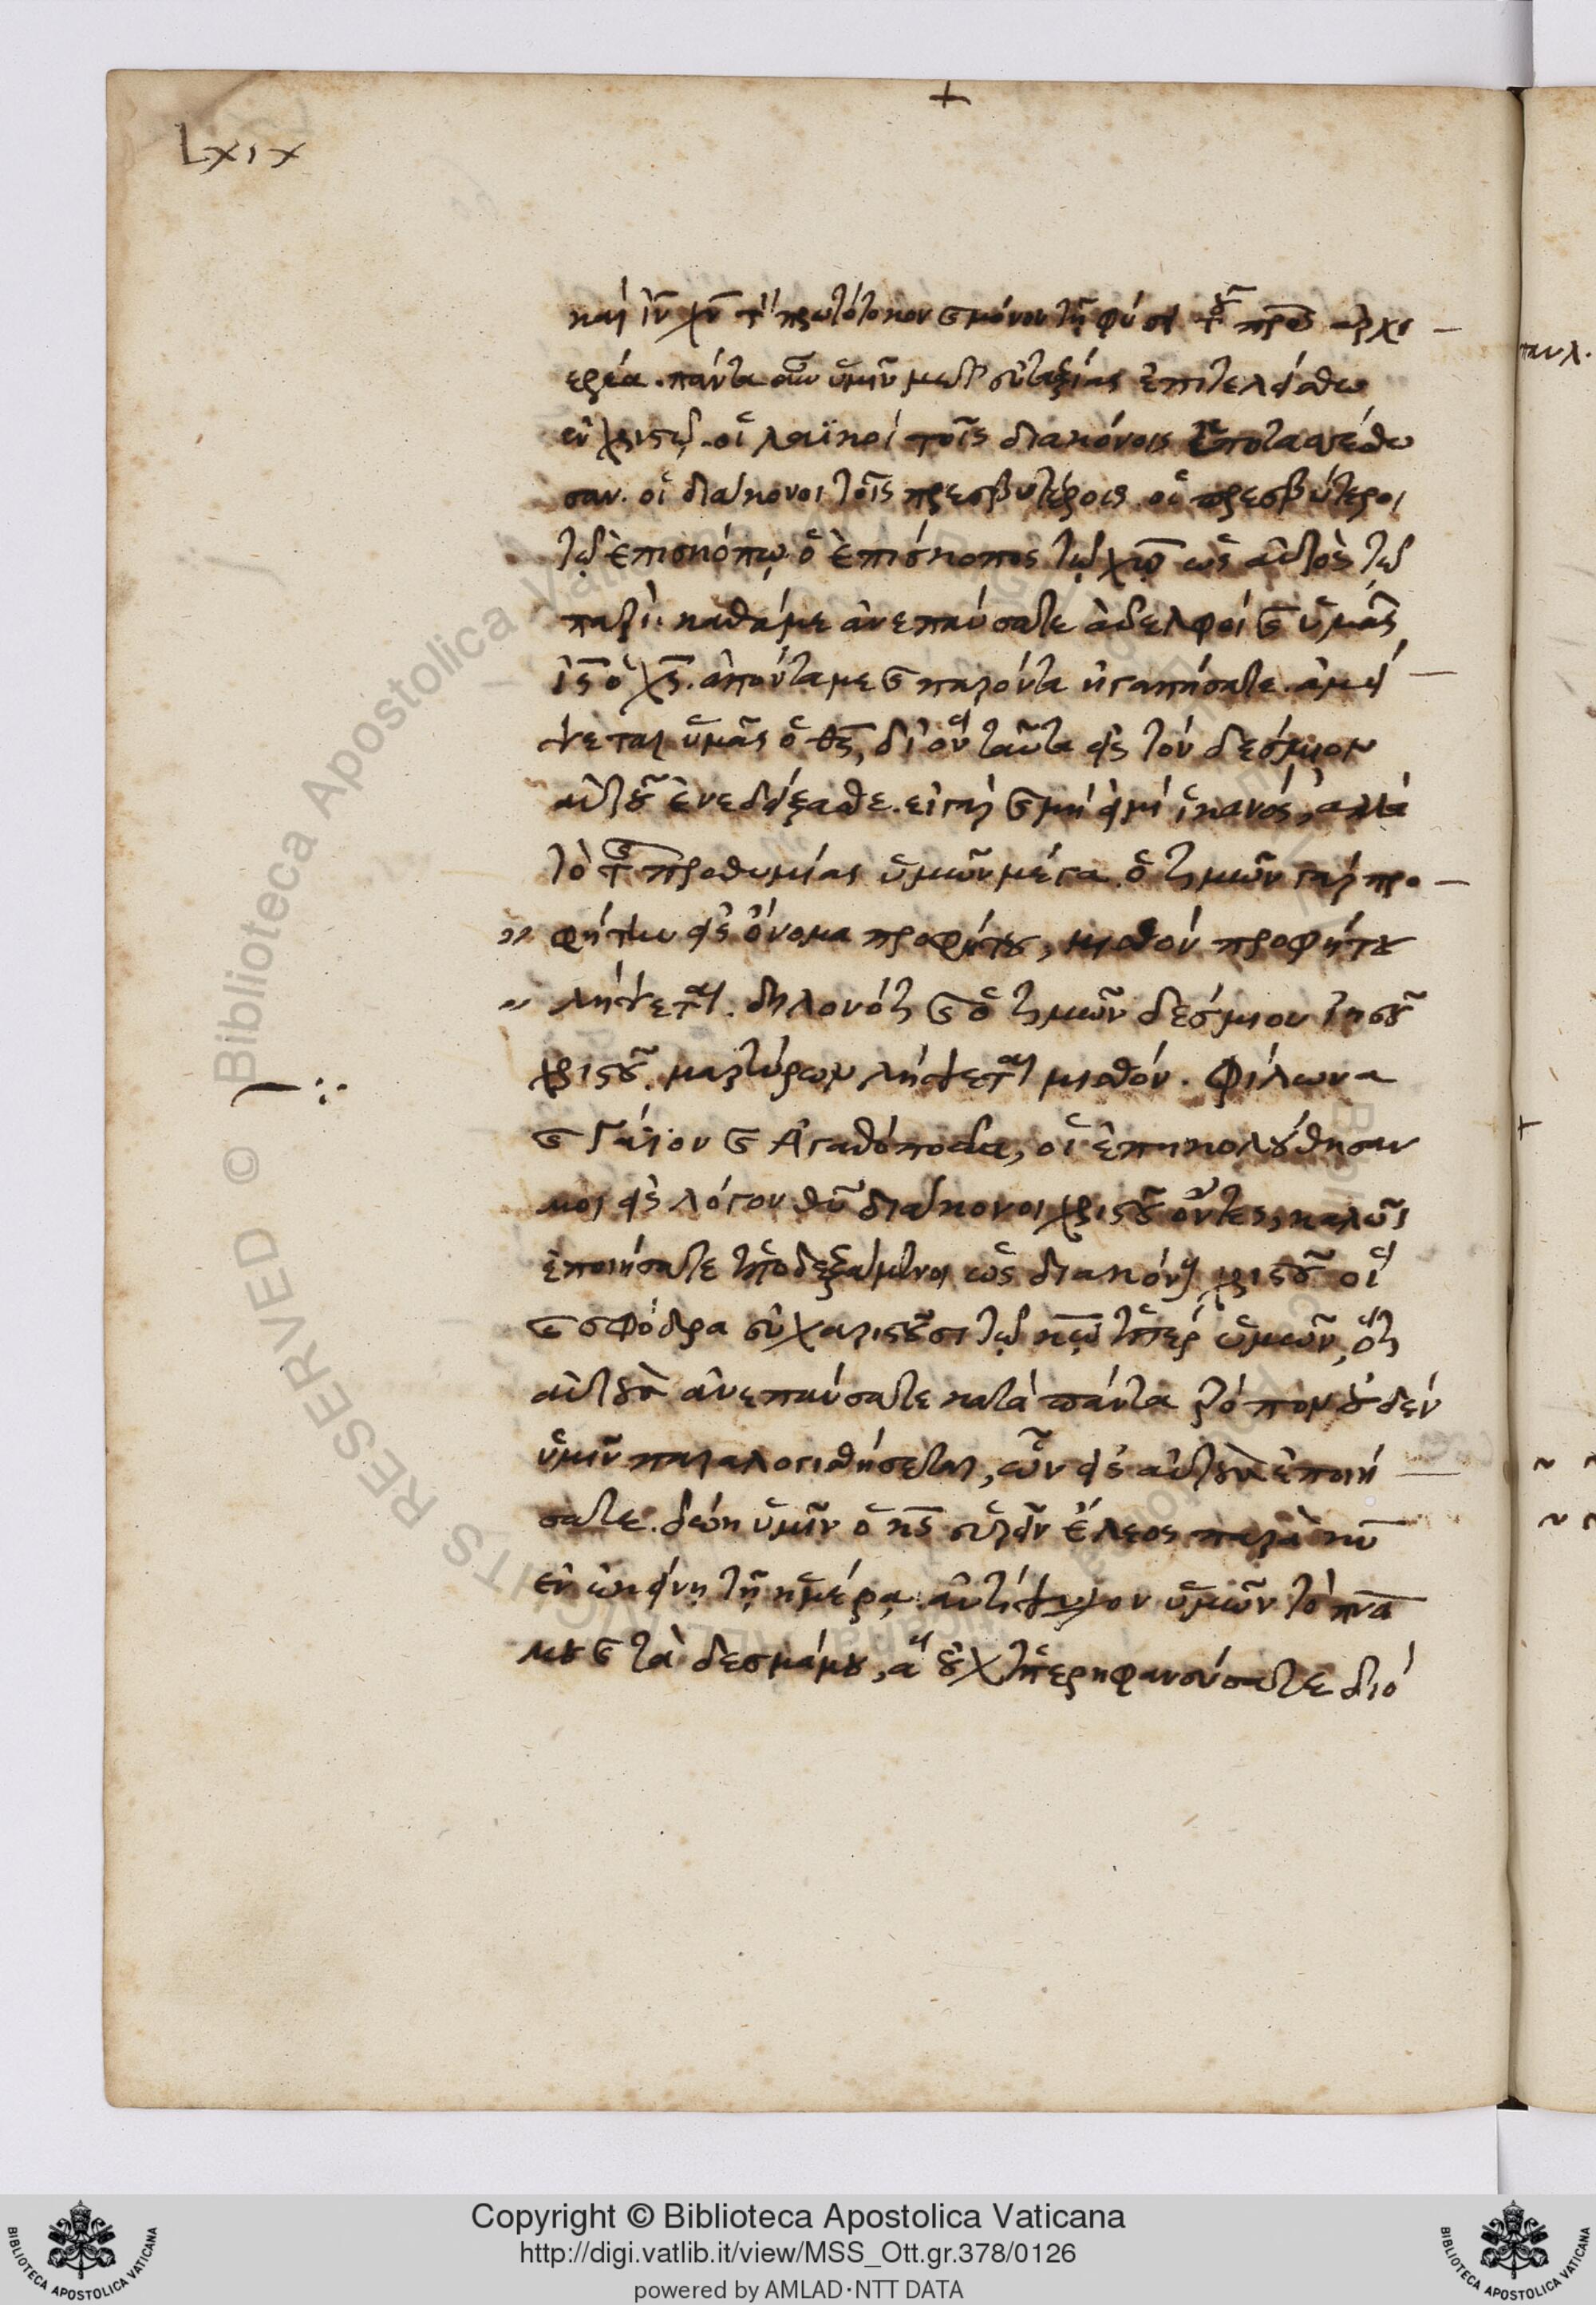 +
Lxιx
καὶ ἰν̅ χν̅ τὸν πρωτότοκον καὶ μόνον τῇ φύσει τοῦ πρ̅σ ἀρχι
ερέα. πάντα οὖν ὑμῖν μετ' εὐταξίας ἐπιτελείσθω
ἐν χριστῷ. οἱ λαϊκοὶ τοῖς διακόνοις ὑποτασσέσθω
σαν. οἱ διάκονοι τοῖς πρεσβυτέροις. οἱ πρεσβύτεροι
τῷ ἐπισκόπῳ, ὁ ἐπίσκοπος τῷ χω̅ ὡς αὐτὸς τῷ
πατρί. καθά με ἀνεπαύσατε ἀδελφοὶ καὶ ὑμᾶς
ἰς̅ ὁ χς̅. ἀπόντα με καὶ παρόντα ἠγαπήσατε. ἀμεί
ψεται ὑμᾶς ὁ θς̅, δι' ὃν ταῦτα εἰς τὸν δέσμιον
αὐτοῦ ἐνεδείξασθε. εἰ γὰρ καὶ μή εἰμι ἱκανός, ἀλλὰ
τὸ τῆς προθυμίας ὑμῶν μέγα. ὁ τιμῶν γὰρ προ
» φήτην εἰς ὄνομα προφήτου, μισθὸν προφήτου
» λήψεται. δηλονότι καὶ ὁ τιμῶν δέσμιον ἰησοῦ
χριστοῦ. μαρτύρων λήψεται μισθόν. Φίλωνα
καὶ Γάϊον καὶ Ἀγαθόποδα, οἳ ἐπηκολούθησαν
μοι εἰς λόγον θυ̅ διάκονοι χριστοῦ ὄντες, καλῶς
ἐποιήσατε ὑποδεξάμενοι ὡς διακόνους χριστοῦ οἳ
καὶ σφόδρα εὐχαριστοῦσι τῷ κω̅ ὑπὲρ ὑμῶν, ὅτι
αὐτοὺς ἀνεπαύσατε κατὰ πάντα τρόπον οὐδὲν
ὑμῖν παραλογισθήσεται, ὧν εἰς αὐτοὺς ἐποιή
σατε. δῴη ὑμῖν ὁ κς̅ εὑρεῖν ἔλεος παρὰ κυ̅
ἐν ἐκείνῃ τῇ ἡμέρᾳ. ἀντίψυχον ὑμῶν τὸ πνα̅
μου καὶ τὰ δεσμά μου, ἃ οὐχ ὑπερηφανεύσατε διό
παυλ.
Copyright © Biblioteca Apostolica Vaticana
http://digi.vatlib.it/view/MSS_Ott.gr.378/0126
powered by AMLAD·NTT DATA